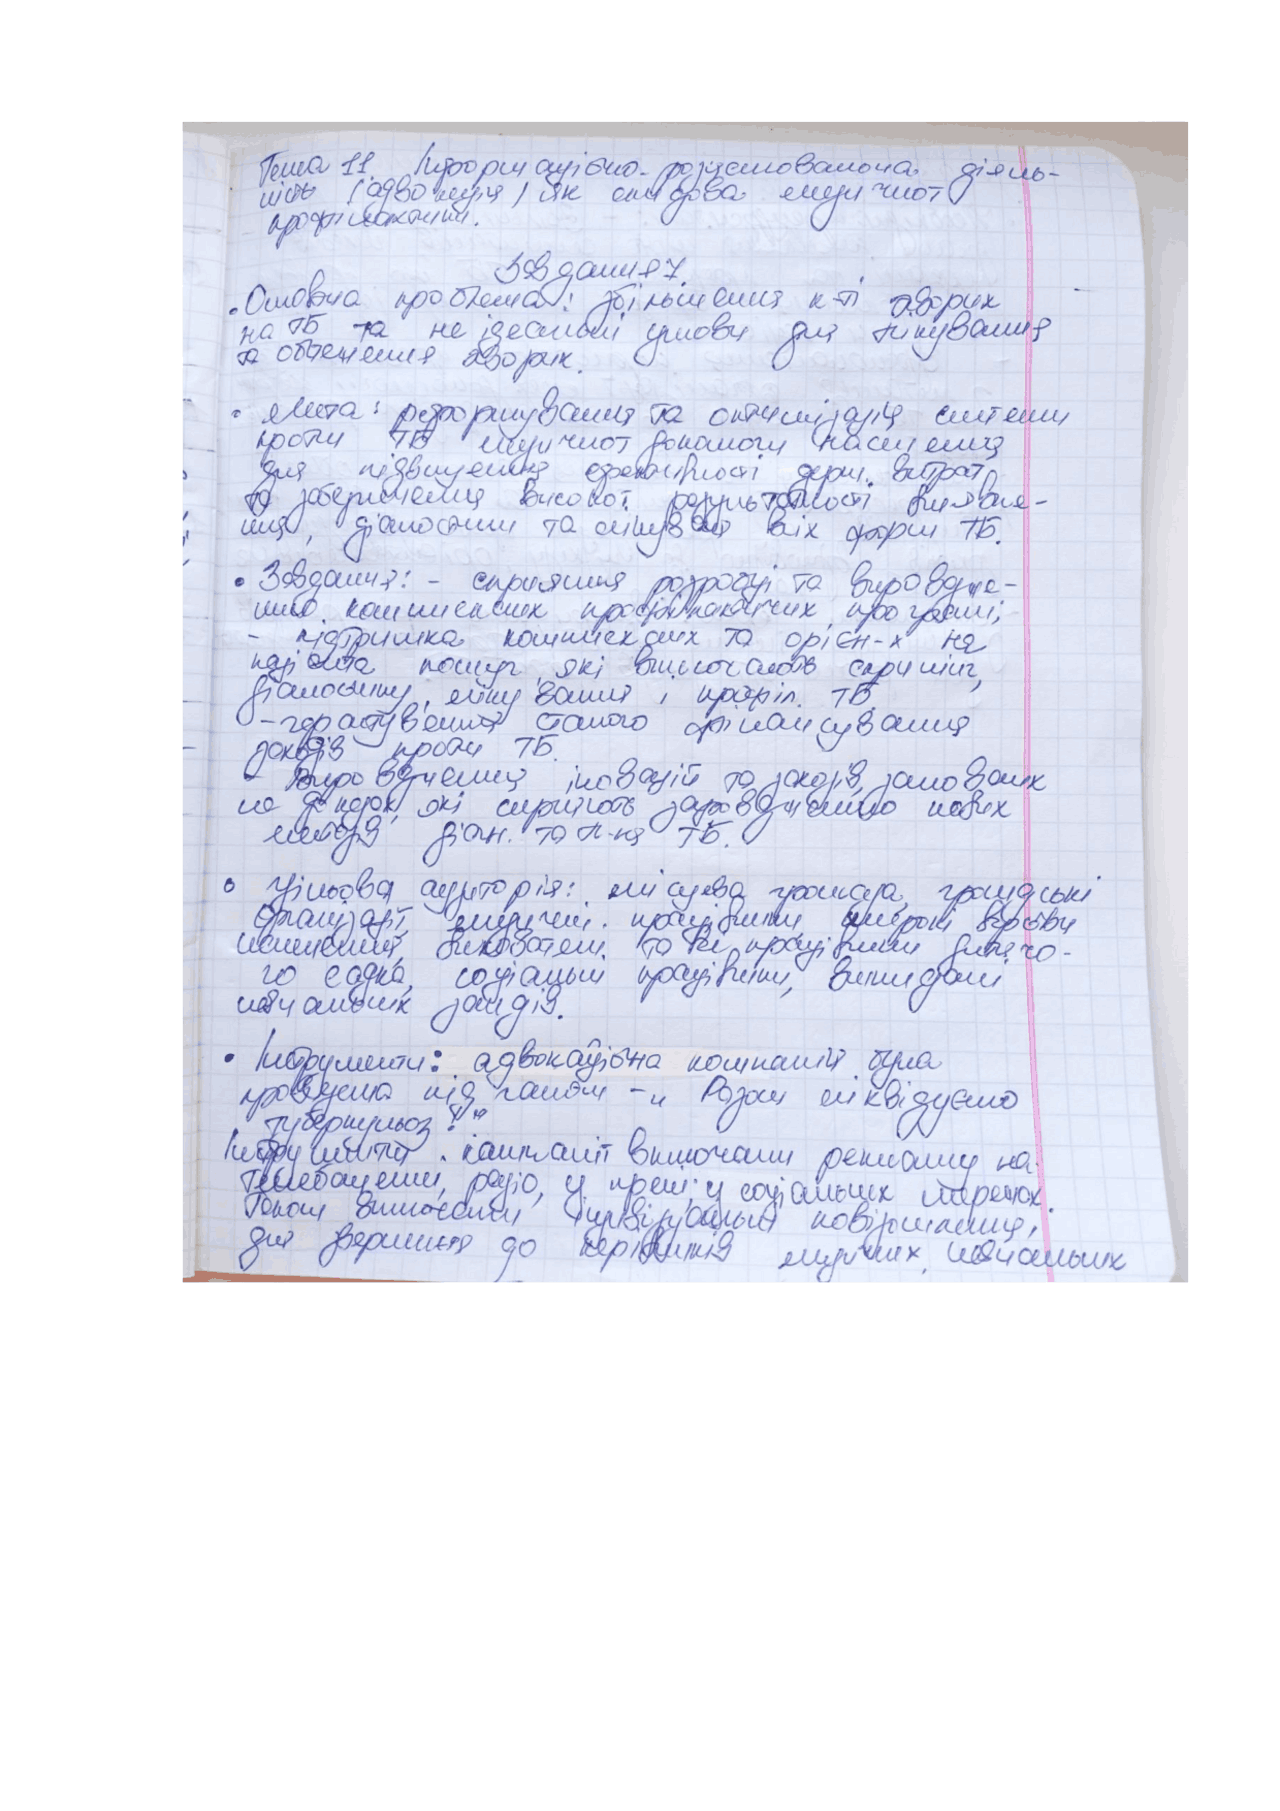 Тема 11. Інформаційно-роз'яснювальна діяль-
ність (адвокація) як складова медичної
профілактики.
Завдання 7
• Основна проблема: збільшення к-ті хворих
на ТБ та не ідеальні умови для лікування
та обстеження хворих.
• Мета: реформування та оптимізація системи
проти ТБ медичної допомоги населення
для підвищення ефективності держ. витрат
та забезпечення високої результатності виявле-
ння, діагностики та лікування всіх форм ТБ.
• Завдання: - сприяння розробці та впровадже-
нню комплексних профілактичних програм;
- підтримка комплексних та орієн-х на
пацієнта послуг, які включають скринінг,
діагностику, лікування і профіл. ТБ
- гарантування сталого фінансування
заходів проти ТБ.
- Впровадження інновацій та заходів, заснованих
на доказах, які сприяють запровадженню нових
методів діагн. та л-ня ТБ.
• Цільова аудиторія: місцева громада, громадські
організації, медичні працівники, широкі верстви
населення, вихователі та всі працівники дитячо-
го садка, соціальні працівники, викладачі
навчальних закладів.
• Інструменти: адвокаційна компанія була
проведена під гаслом - „Разом ліквідуємо
туберкульоз!"
Інструменти кампанії включали рекламу на
телебаченні, радіо, у пресі, у соціальних мережах.
Також включали індивідуальні повідомлення,
для звернення до керівників медичних, навчальних